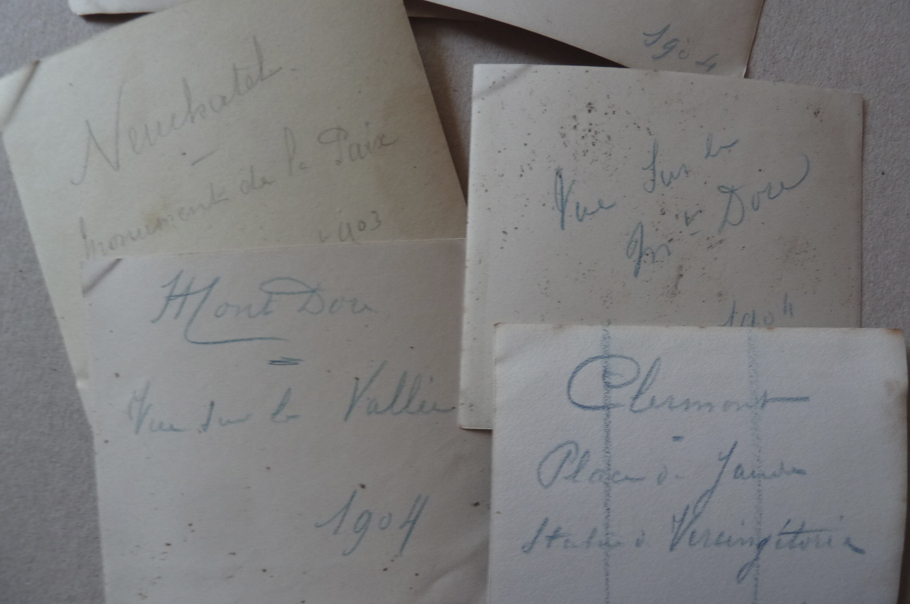 1904
Neuchatel
Monument de la Paix
1903
Vue sur le
Mt Dore
1904
Mont Dore
Vue sur la Vallée
1904
Clermont
Place de Jaude
Statue de Vercingétorix